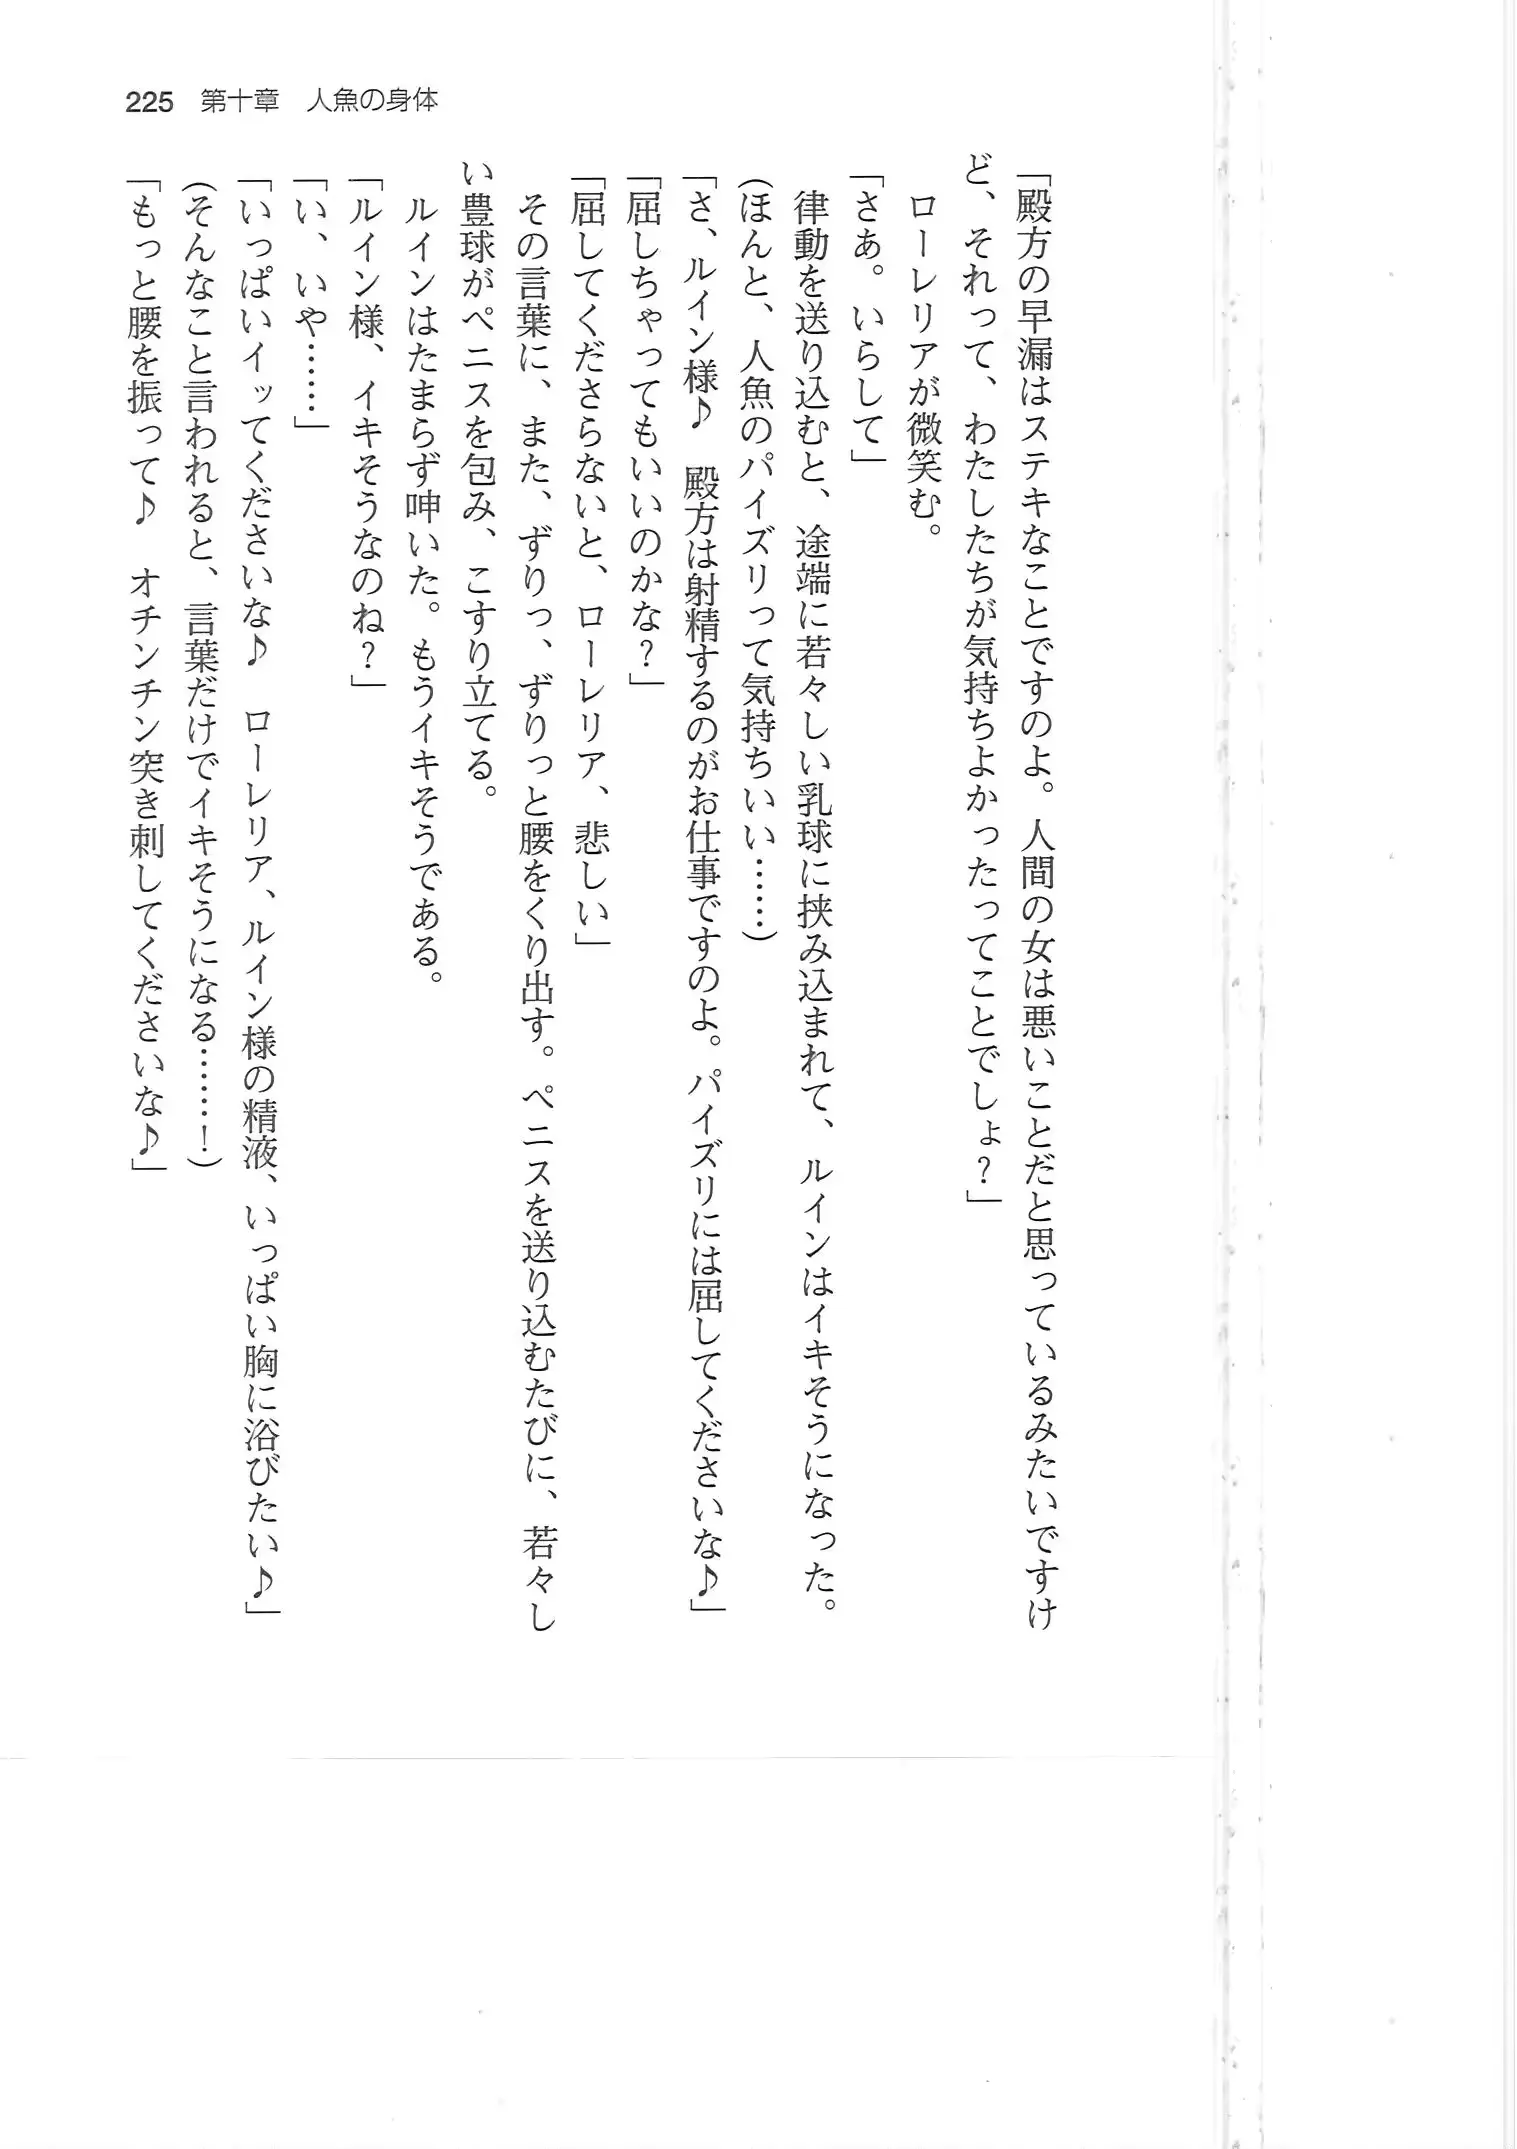 225 第十章 人魚の身体
「殿方の早漏はステキなことですのよ。人間の女は悪いことだと思っているみたいですけ
ど、それって、わたしたちが気持ちよかったってことでしょ？」
ローレリアが微笑む。
「さあ。いらして」
律動を送り込むと、途端に若々しい乳球に挟み込まれて、ルインはイキそうになった。
（ほんと、人魚のパイズリって気持ちいい……）
「さ、ルイン様♪　殿方は射精するのがお仕事ですのよ。パイズリには屈してくださいな♪」
「屈しちゃってもいいのかな？」
「屈してくださらないと、ローレリア、悲しい」
その言葉に、また、ずりっ、ずりっと腰をくり出す。ペニスを送り込むたびに、若々し
い豊球がペニスを包み、こすり立てる。
ルインはたまらず呻いた。もうイキそうである。
「ルイン様、イキそうなのね？」
「い、いや……」
「いっぱいイッてくださいな♪　ローレリア、ルイン様の精液、いっぱい胸に浴びたい♪」
（そんなこと言われると、言葉だけでイキそうになる……！）
「もっと腰を振って♪　オチンチン突き刺してくださいな♪」